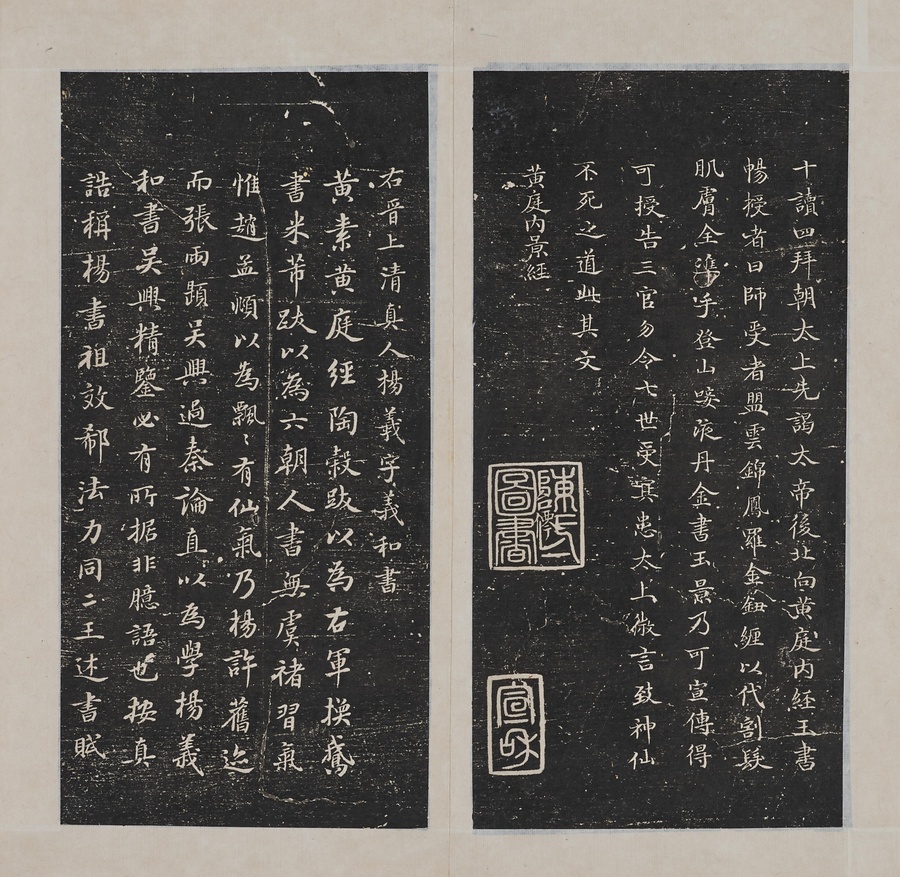 十讀四拜朝太上先謁太帝後北向黃庭內経玉書
暢授者曰師受者盟雲錦鳳羅金鈕纏以代割髮
肌膚全㩦手登山歃液丹金書玉景乃可宣傳得
可授告三官勿令七世受冥患太上微言致神仙
不死之道此其文
黃庭內景經
陳氏圖書
宣和
右晉上清真人楊羲字羲和書
黃素黃庭經陶穀跋以為右軍換鵞
書米芾跋以為六朝人書無虞褚習氣
惟趙孟頫以為飄〻有仙氣乃楊許舊迹
而張雨題吳興過秦論直以為學楊羲
和書吳興精鑒必有所据非臆語也按真
誥稱楊書祖效郗法力同二王述書賦